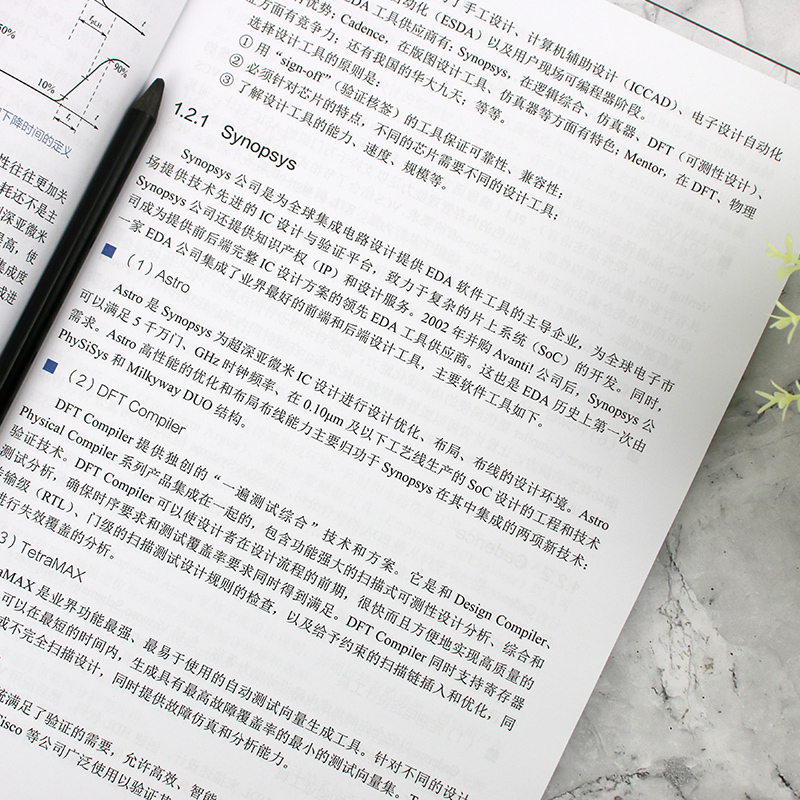 50%
t_pLH
t
10%
90%
t_r
t
下降时间的定义
性往往更加关
耗还不是主
深亚微米
提高，使
集成度
成进
了手工设计、计算机辅助设计（ICCAD）、电子设计自动化
自动化（ESDA）以及用户现场可编程器阶段。
EDA 工具供应商有：Synopsys，在逻辑综合、仿真器、DFT（可测性设计）、
方面有优势；Cadence，在版图设计工具、仿真器等方面有特色；Mentor，在 DFT、物理
方面有竞争力；还有我国的华大九天；等等。
选择设计工具的原则是：
① 用“sign-off”（验证核签）的工具保证可靠性、兼容性；
② 必须针对芯片的特点，不同的芯片需要不同的设计工具；
③ 了解设计工具的能力、速度、规模等。
1.2.1 Synopsys
Synopsys 公司是为全球集成电路设计提供 EDA 软件工具的主导企业，为全球电子市
场提供技术先进的 IC 设计与验证平台，致力于复杂的片上系统（SoC）的开发。同时，
Synopsys 公司还提供知识产权（IP）和设计服务。2002 年并购 Avanti 公司后，Synopsys 公
司成为提供前后端完整 IC 设计方案的领先 EDA 工具供应商。这也是 EDA 历史上第一次由
一家 EDA 公司集成了业界最好的前端和后端设计工具，主要软件工具如下。
（1）Astro
Astro 是 Synopsys 为超深亚微米 IC 设计进行设计优化、布局、布线的设计环境。Astro
可以满足 5 千万门、GHz 时钟频率、在 0.10μm 及以下工艺线生产的 SoC 设计的工程和技术
需求。Astro 高性能的优化和布局布线能力主要归功于 Synopsys 在其中集成的两项新技术：
PhySiSys 和 Milkyway DUO 结构。
（2）DFT Compiler
DFT Compiler 提供独创的“一遍测试综合”技术和方案。它是和 Design Compiler、
Physical Compiler 系列产品集成在一起的，包含功能强大的扫描式可测性设计分析、综合和
验证技术。DFT Compiler 可以使设计者在设计流程的前期，很快而且方便地实现高质量的
测试分析，确保时序要求和测试覆盖率要求同时得到满足。DFT Compiler 同时支持寄存器
传输级（RTL）、门级的扫描测试设计规则的检查，以及给予约束的扫描链插入和优化，同
进行失效覆盖的分析。
3）TetraMAX
aMAX 是业界功能最强、最易于使用的自动测试向量生成工具。针对不同的设计
可以在最短的时间内，生成具有最高故障覆盖率的最小的测试向量集。T
或不完全扫描设计，同时提供故障仿真和分析能力。
满足了验证的需要，允许高效、智能
isco 等公司广泛使用以验证